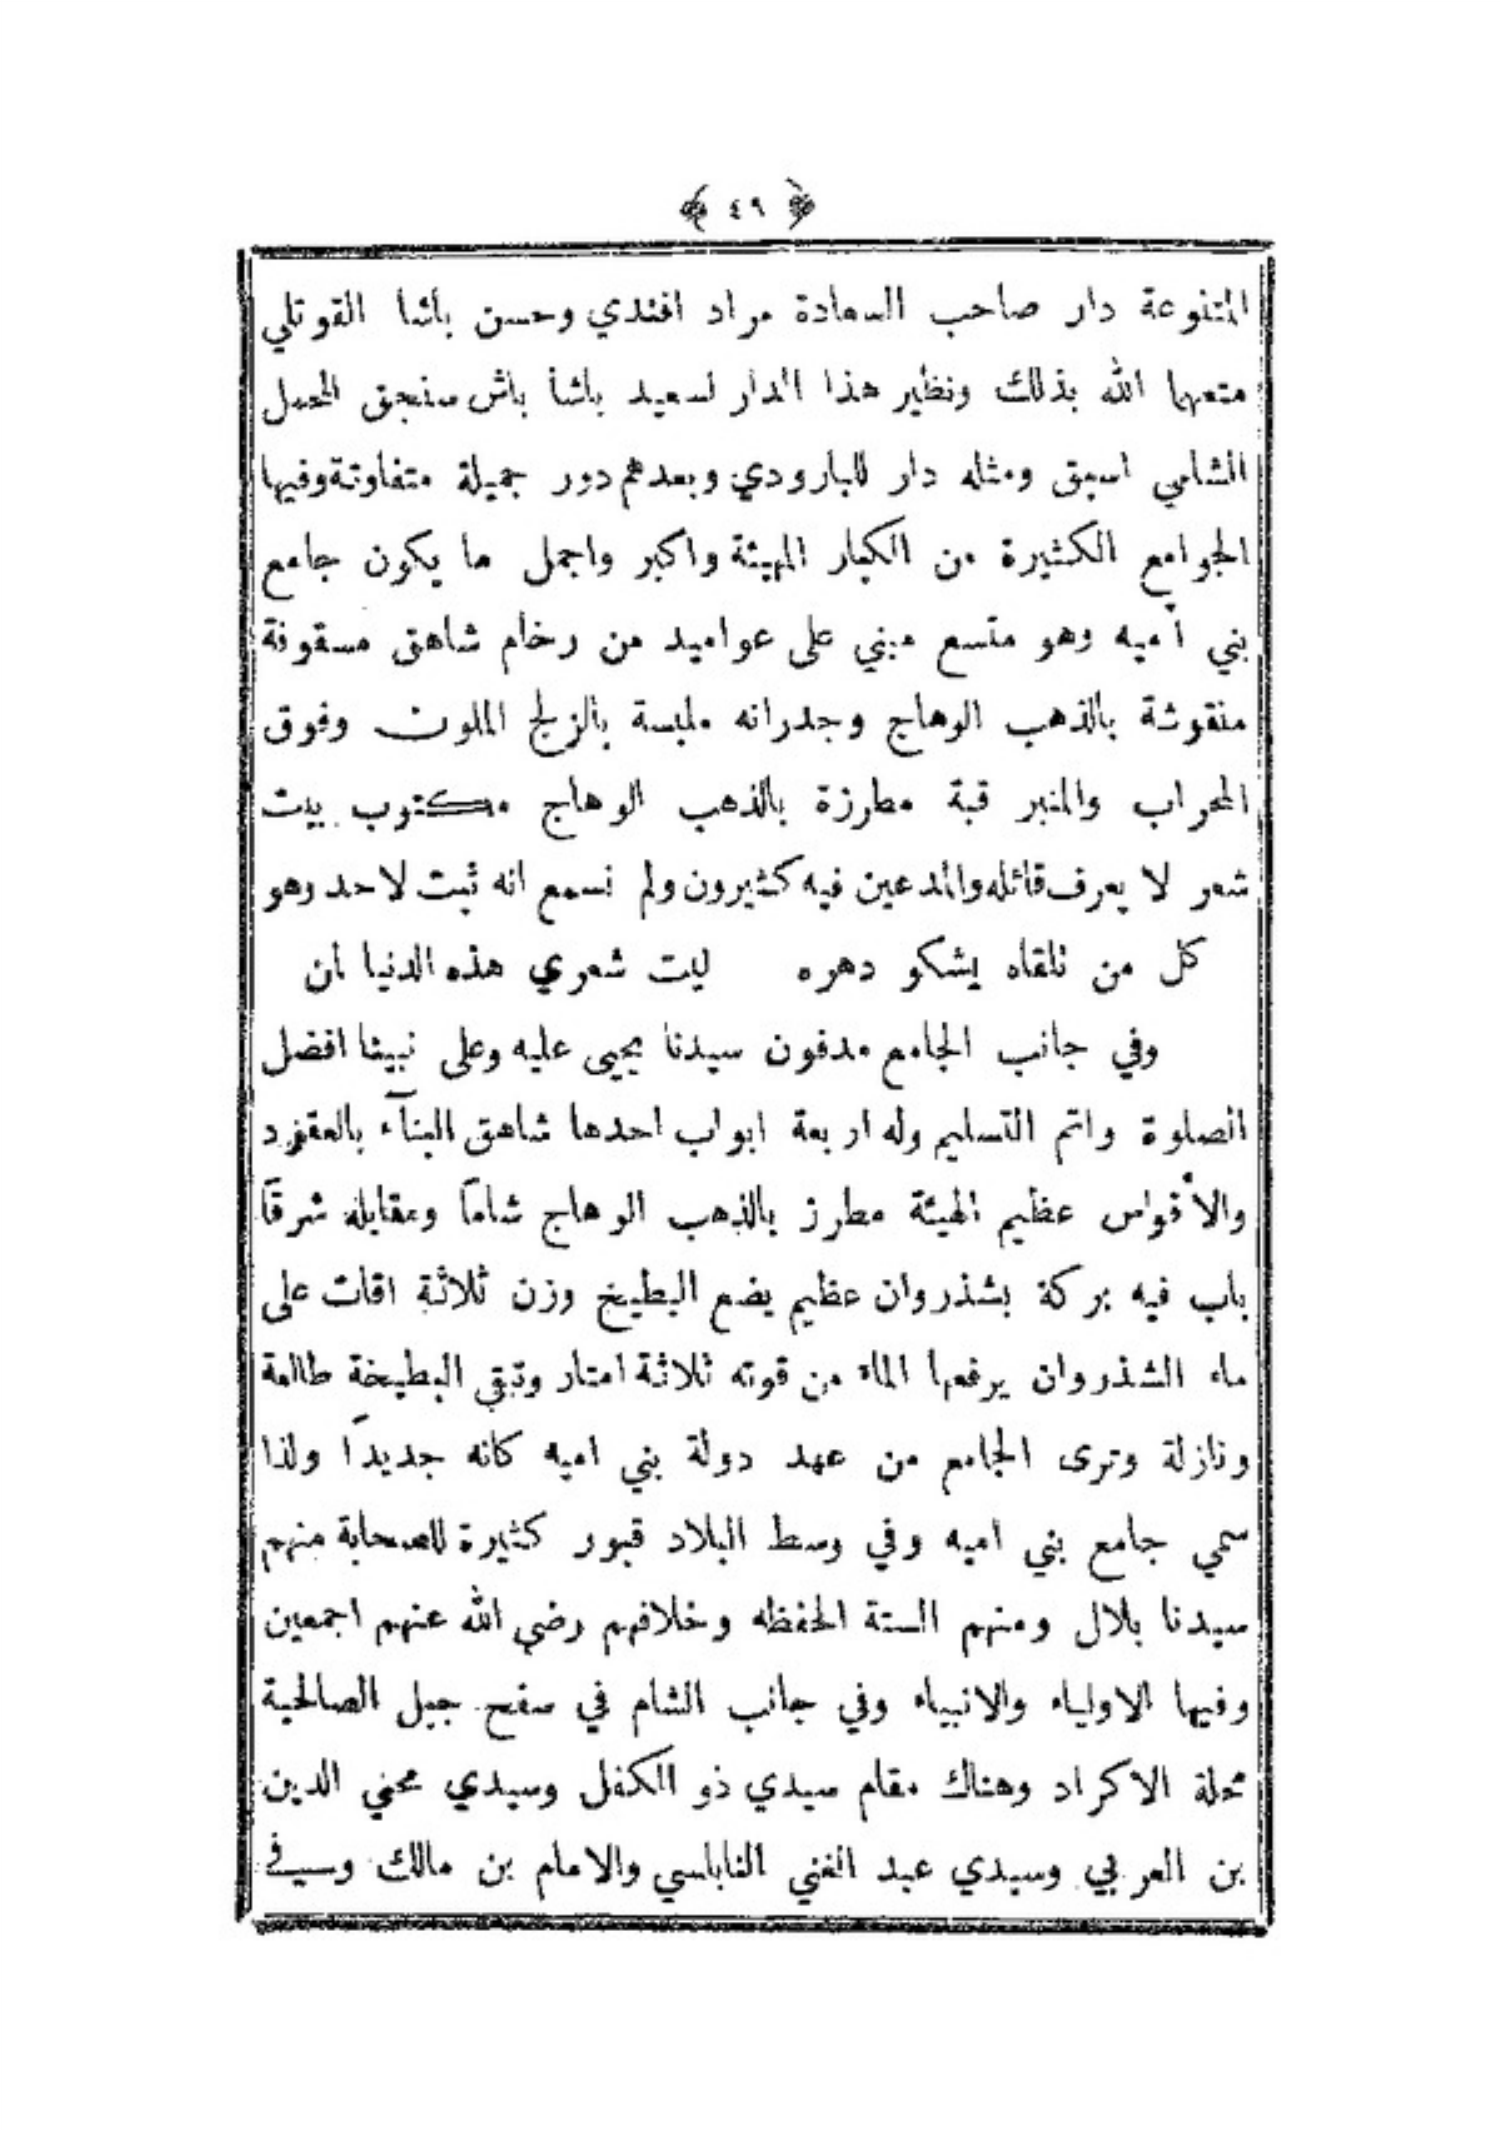 ﴿ ٤٩ ﴾
المتنوعة دار صاحب السعادة مراد افندي وحسن باشا القوتلي
متعهما الله بذلك ونظير هذا الدار لسعيد باشا باش سنجق المحمل
الشامي اسبق ومثله دار للبارودي وبعدهم دور جميلة متفاوتة وفيها
الجوامع الكثيرة من الكبار المهيئة واكبر واجمل ما يكون جامع
بني أميه وهو متسع مبني على عواميد من رخام شاهق مسقونة
منقوشة بالذهب الوهاج وجدرانه ملبسة بالزلج الملون وفوق
المحراب والمنبر قبة مطرزة بالذهب الوهاج مكتوب بيت
شعر لا يعرف قائله والمدعين فيه كثيرون ولم نسمع انه ثبت لاحد وهو
كل من تلقاه يشكو دهره ليت شعري هذه الدنيا لمن
وفي جانب الجامع مدفون سيدنا يحيى عليه وعلى نبينا افضل
الصلوة واتم التسليم وله اربعة ابواب احدها شاهق البنآء بالعقود
والأقواس عظيم الهيئة مطرز بالذهب الوهاج شاماً ومقابله شرقاً
باب فيه بركة بشذروان عظيم يضع البطيخ وزن ثلاثة اقات على
ماء الشذروان يرفعها الماء من قوته ثلاثة امتار وتبقى البطيخة طالعة
ونازلة وترى الجامع من عهد دولة بني اميه كانه جديداً ولذا
سمي جامع بني اميه وفي وسط البلاد قبور كثيرة للصحابة منهم
سيدنا بلال ومنهم الستة الحفظه وخلافهم رضي الله عنهم اجمعين
وفيها الاولياء والانبياء وفي جانب الشام في سفح جبل الصالحية
محلة الاكراد وهناك مقام سيدي ذو الكفل وسيدي محي الدين
بن العربي وسيدي عبد الغني النابلسي والامام بن مالك وسيفي